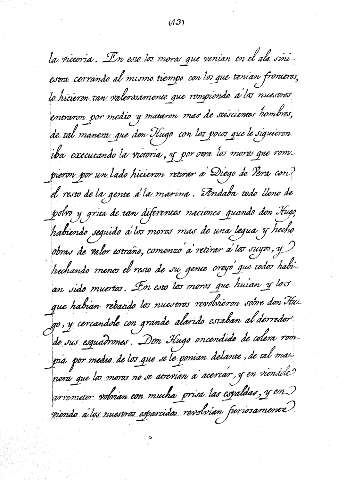 (13)
la victoria. En esto los moros que venian en el ala sini-
estra cerrando al mismo tiempo con los que tenian fronteros,
lo hicieron tan valerosamente que rompiendo á los nuestros
entraron por medio y mataron mas de seiscientos hombres,
de tal manera que don Hugo con los pocos que le siguieron
iba executando la victoria, y por otra los moros que rom-
pieron por un lado hicieron retirar á Diego de Vera con
el resto de la gente á la marina. Andaba todo lleno de
polvo y grita de tan diferentes naciones quando don Hugo
habiendo seguido á los moros mas de una legua y hecho
obras de valor estraño, comenzó á retirar á los suyos, y
hechando menos el resto de su gente creyó que todos habi-
an sido muertos. En esto los moros que huian y los
que habian rebando los nuestros revolvieron sobre don Hu-
go, y cercandole con grande alarido estaban al derredor
de sus esquadrones. Don Hugo encendido de colera rom-
pia por medio de los que se le ponian delante, de tal ma-
nera que los moros no se atrevian á acercar, y en viendole
arremeter volvian con mucha prisa las espaldas, y en
viendo á los nuestros esparcidos revolvian furiosamente